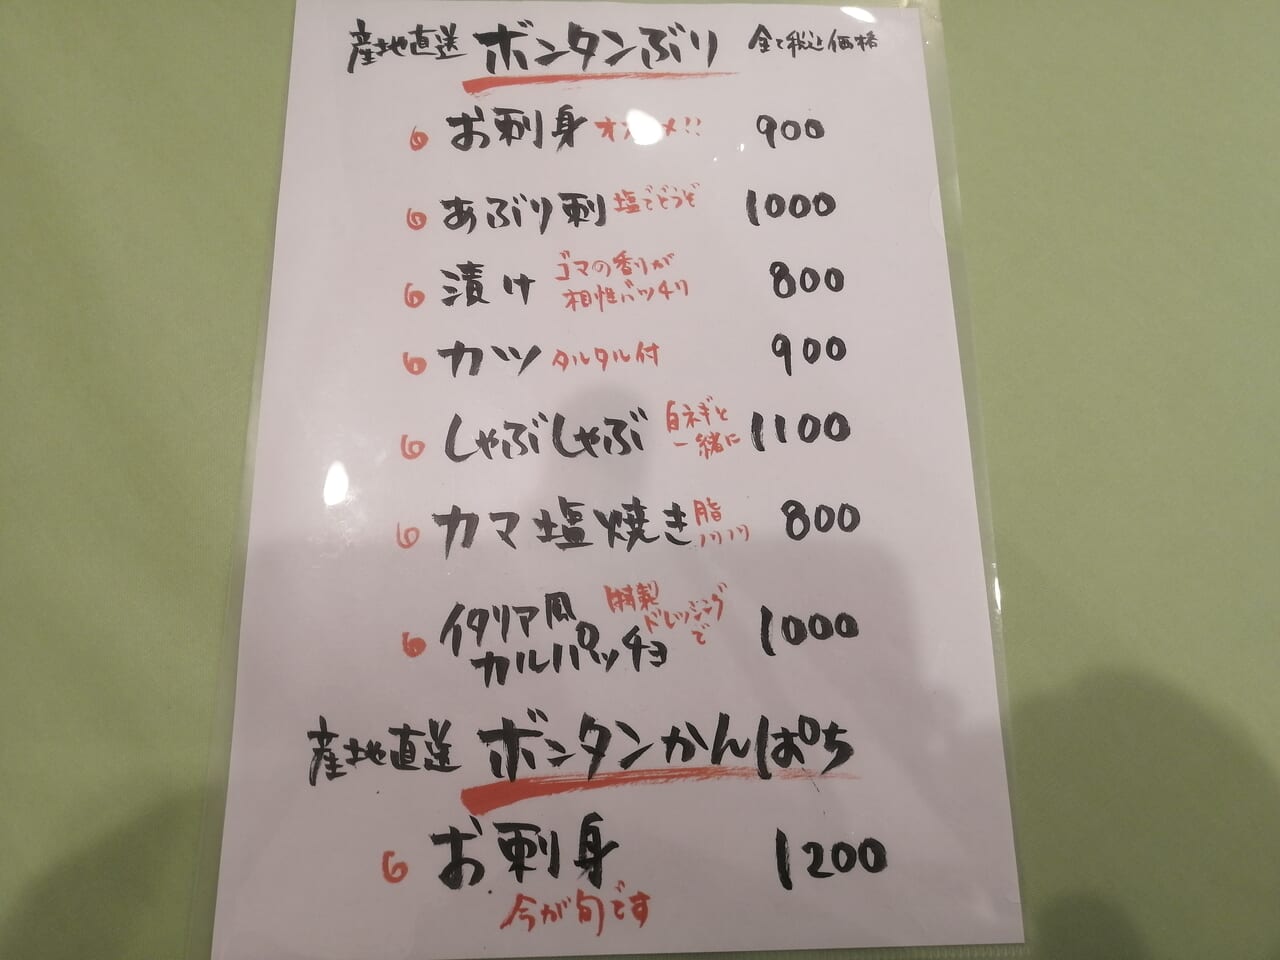 産地直送 ボンタンぶり 全て税込価格
お刺身 オススメ!! 900
あぶり刺 塩でどうぞ 1000
漬け ゴマの香りが 相性バッチリ 800
カツ タルタル付 900
しゃぶしゃぶ 白ネギと 一緒に 1100
カマ塩焼き 脂ノリノリ 800
イタリア風 カルパッチョ 特製 ドレッシング で 1000
産地直送 ボンタンかんぱち
お刺身 1200
今が旬です